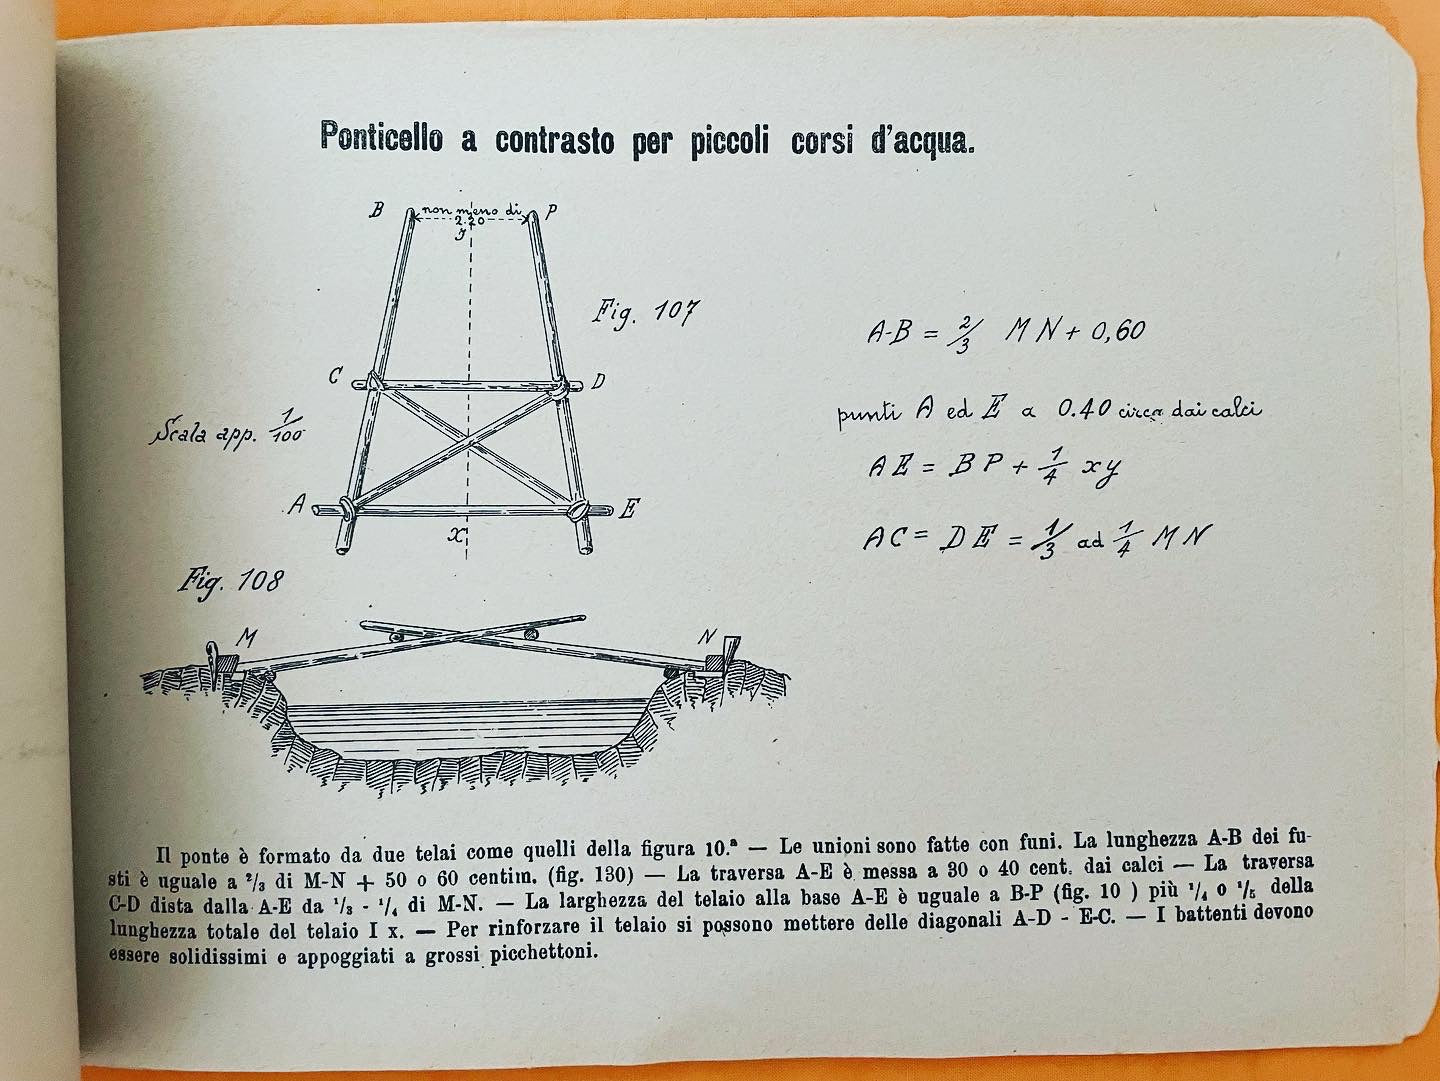 Ponticello a contrasto per piccoli corsi d'acqua.
B non meno di P
2.20
I
Fig. 107
C D
Scala app. 1/100
A E
x
A-B = 2/3 MN + 0,60
punti A ed E a 0.40 circa dai calci
AE = BP + 1/4 xy
AC = DE = 1/3 ad 1/4 MN
Fig. 108
M N
Il ponte è formato da due telai come quelli della figura 10.ª — Le unioni sono fatte con funi. La lunghezza A-B dei fu-
sti è uguale a 2/3 di M-N + 50 o 60 centim. (fig. 130) — La traversa A-E è messa a 30 o 40 cent. dai calci — La traversa
C-D dista dalla A-E da 1/3 - 1/4 di M-N. — La larghezza del telaio alla base A-E è uguale a B-P (fig. 10 ) più 1/4 o 1/5 della
lunghezza totale del telaio I x. — Per rinforzare il telaio si possono mettere delle diagonali A-D - E-C. — I battenti devono
essere solidissimi e appoggiati a grossi picchettoni.